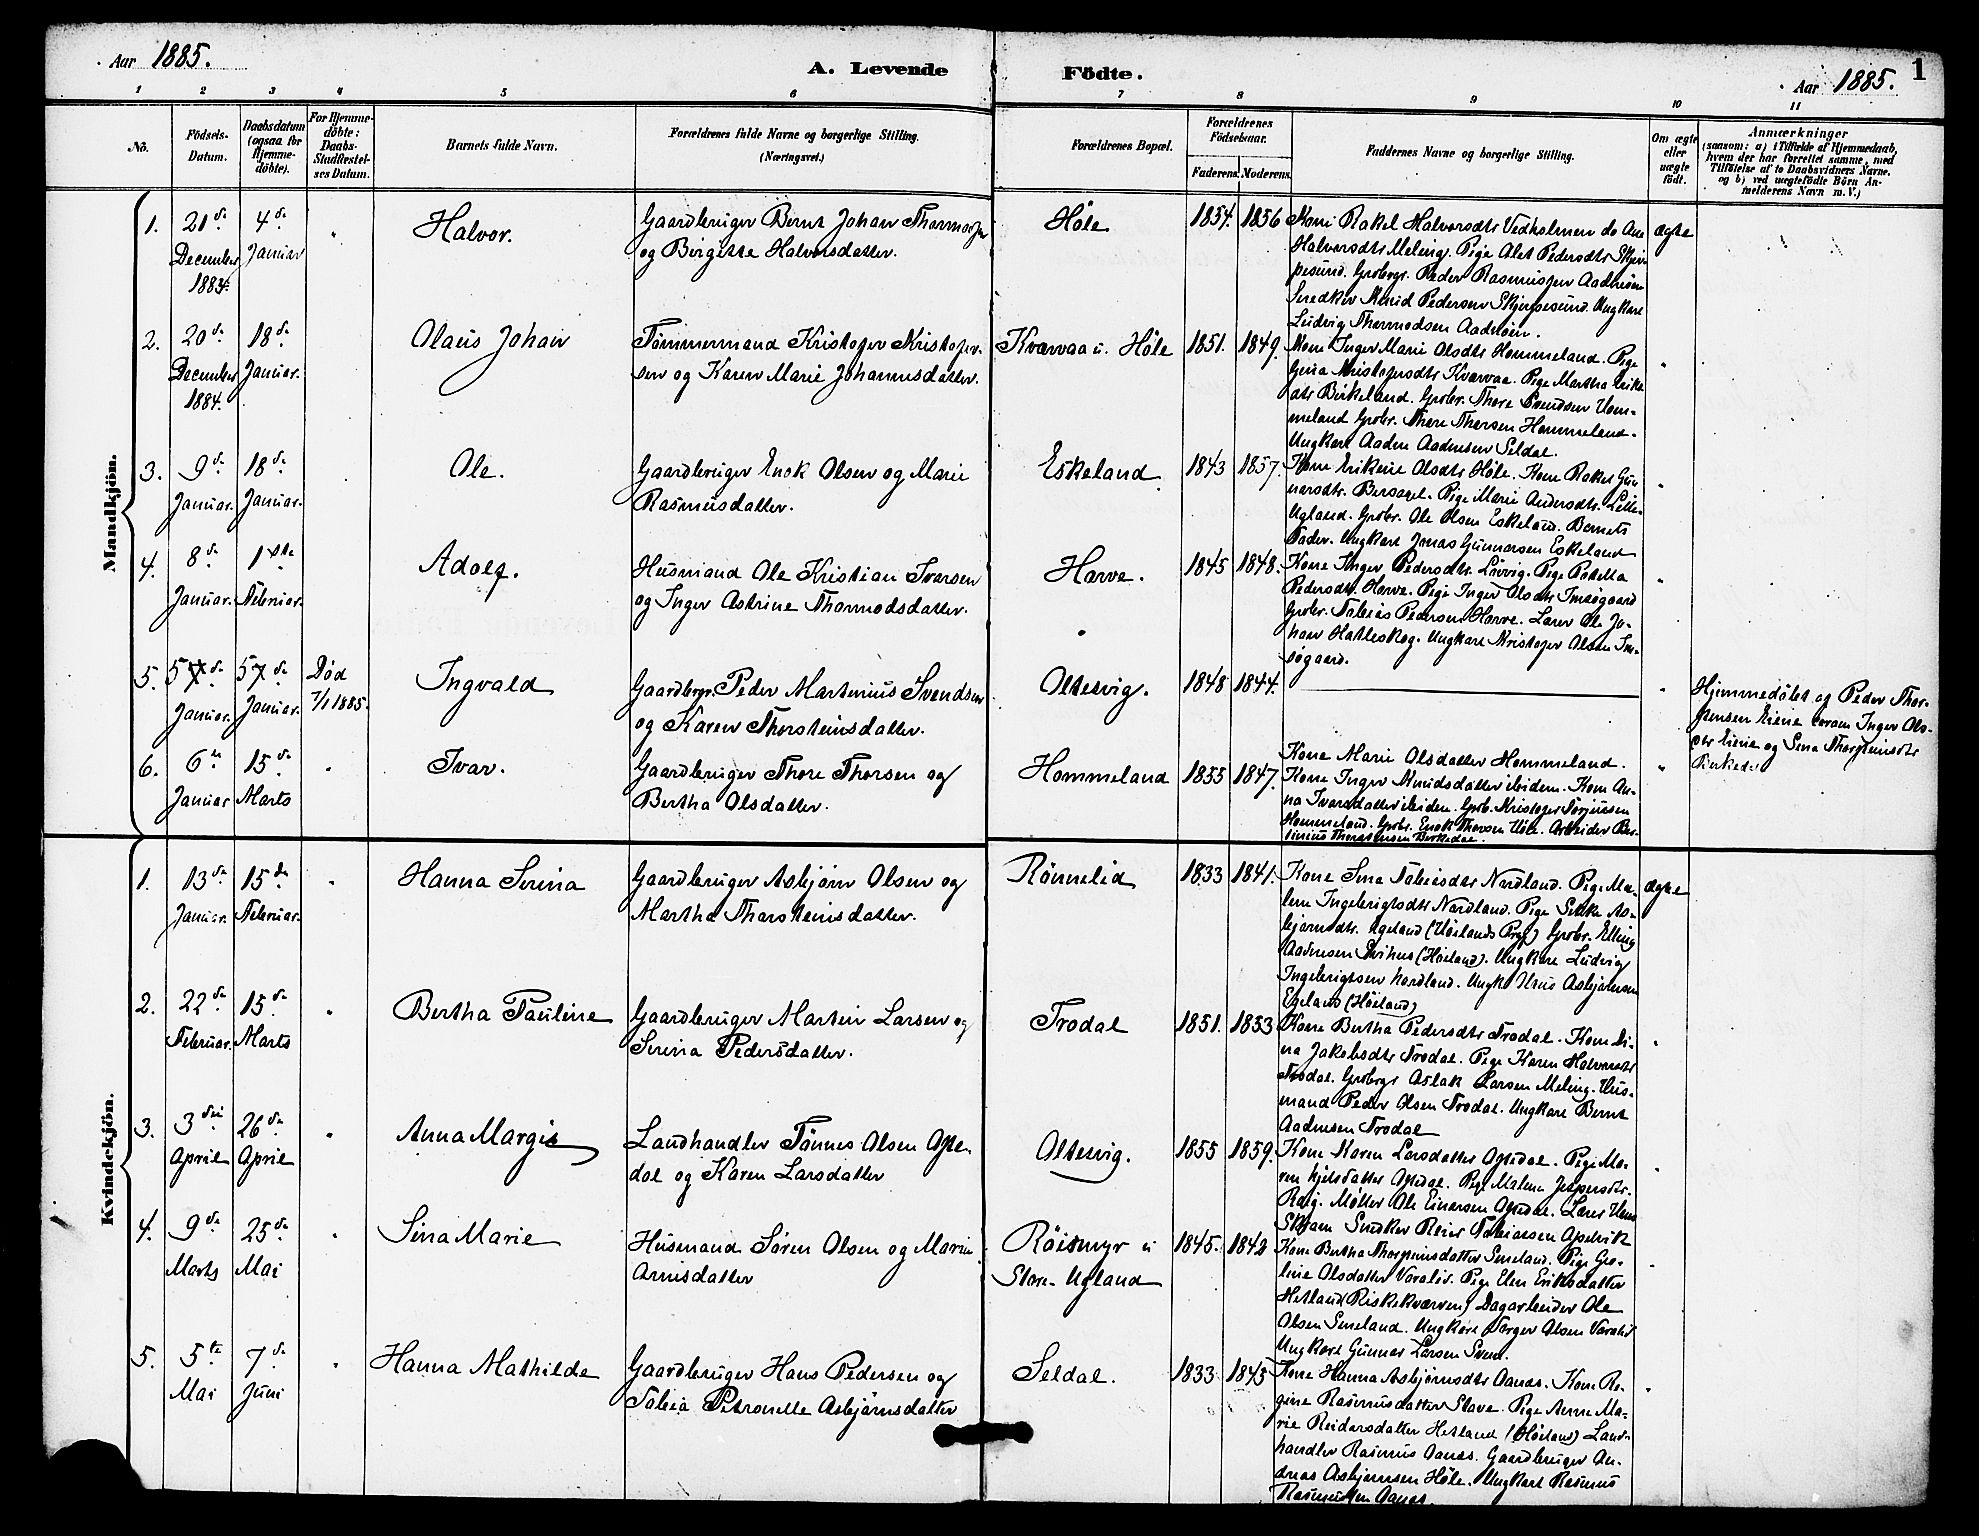 Aar 1885.
A. Levende Födte.
Aar 1885.
1
1 2 3 4 5 6 7 8 9 10 11
No.
Födsels-
Datum.
Daabsdatum
(ogsaa for
Hjemme-
döbte).
For Hjemme-
döbte:
Daabs-
Stadfæstel-
ses Datum.
Barnets fulde Navn.
Forældrenes fulde Navne og borgerlige Stilling.
(Næringsvei.)
Forældrenes Bopæl.
Forældrenes
Födselsaar.
Faderens. Moderens.
Faddernes Navne og borgerlige Stilling.
Om ægte
eller
uægte
födt.
Anmærkninger
(saasom: a) i Tilfælde af Hjemmedaab,
hvem der har forrettet samme, med
Tilföielse af to Daabsvidners Navne,
og b) ved uægtefödte Börn An-
melderens Navn m. V.)
Mandkjön.
1. 21de December 1884. 4de Januar " Halvor.
Gaardbruger Bernt Johan Thormodsen
og Birgitte Halvorsdatter.
Høle 1854. 1856
Kone Rakel Halvorsdtr Vedholmen do Ane
Halvorsdtr Meling. Pige Alet Pedersdtr Skjør-
pesund. Grdbrgr. Peder Rasmussen Aadnøen
Snedker Knud Pedersen Skjørpesund. Ungkarl
Ludvig Thormodsen Aadnøen.
ægte
2. 20de December 1884. 18de Januar. Olaus Johan
Tømmermand Kristofer Kristofer-
sen og Karen Marie Johannesdatter.
Kvævaa u. Høle 1851. 1849.
Kone Inger Marie Olsdtr Hommeland. Pige
Gina Kristofersdtr Kvævaa. Pige Martha Eriks-
dtr Birkeland. Grdbr. Thore Svendsen Hom-
meland Grdbr. Thore Thorsen Hommeland.
Ungkarl Aaden Aadnesen Seldal.
"
3. 9de Januar. 18de Januar. Ole.
Gaardbruger Enok Olsen og Marie
Rasmusdatter.
Eskeland 1843 1857.
Kone Erikine Olsdtr Høle. Kone Rakel Gun-
narsdtr. Bersagel. Pige Marie Andersdtr. Lille-
Ugland. Grdbr. Ole Olsen Eskeland. Barnets
Fader. Ungkarl Jonas Gunnarsen Eskeland
"
4. 8de Januar. 1ste Februar. Adolf.
Husmand Ole Kristian Ivarsen
og Inger Astrine Thormodsdatter.
Harve. 1845 1848.
Kone Inger Pedersdtr. Pige
Pedersdtr. Harve. Pige Inger Olsdtr Imsøgaard
Grdbr. Tobias Pedersen Harve. Lærer Ole Jo-
han Hatleskog. Ungkarl Kristofer Olsen Im-
søgaard.
"
5. 5de Januar. 5de Januar. Død 7/1 1885. Ingvald
Gaardbrgr. Peder Martinius Svendsen
og Karen Thorsteinsdatter.
Oltesvig. 1848 1844.
"
Hjemmedøbt af Peder Thor-
sensen Eiene coram Inger Ols-
dtr Eiene og Sina Thorsteinsdtr
6. 6te Januar 15de Marts " Ivar.
Gaardbruger Thore Thorsen og
Bertha Olsdatter.
Hommeland 1855 1847.
Kone Marie Olsdatter Hommeland.
Kone Inger Knudsdatter ibidem. Kone An-
na Ivarsdatter ibidem. Grdb. Kristofer Torjusen
Hommeland. Grdbr. Enok Thorsen Høle. Arbeider Ber-
tinius Thorsteinsen Birkedal.
"
Kvindekjön.
1. 13de Januar. 15de Februar. " Hanna Serina
Gaardbruger Asbjørn Olsen og
Martha Thorsteinsdatter.
Rønnelid 1833 1841.
Kone Sina Tobiasdtr Nordland. Pige Ma-
lene Ingebrigtsdtr Nordland. Pige Silke As-
bjørnsdtr. Egeland (Høilands Prgj.) Grdbr. Elling
Aadnesen (Høiland). Ungkarl Ludvig
Ingebrigtsen Nordland. Ungk. Asbjørnsen
Egeland (Høiland)
ægte
2. 22de Februar. 15de Marts " Bertha Pauline
Gaardbruger Martin Larsen og
Serina Pedersdatter.
Trodal 1851. 1853
Kone Bertha Pedersdtr Trodal. Kone Si-
na Jakobsdtr Trodal. Pige Karen Halvorsdtr
Trodal. Grdbrgr Aslak Larsen Meling. Hus-
mand Peder Olsen Trodal. Ungkarl Bernt
Aadnesen Trodal
"
3. 3die April 26de April " Anna Margit
Landhandler Tønnes Olsen Apse-
dal og Karen Larsdatter
Oltesvig. 1855 1859.
Kone Karen Larsdatter Apsedal. Pige Ma-
ren Kjelsdatter Apsedal. Pige Malena Jespersdtr.
Møller Ole Einarsen Apsedal. Lærer Hans
Skjam Snedker Reier Tobiassen Apelvik
"
4. 9de Marts 25de Mai " Sina Marie
Husmand Søren Olsen og Marie
Arnisdatter
Røismyr u 1845. 1842
Store-Ugland
Kone Bertha Thorsteinsdatter Seneland. Pige Geo-
line Olsdatter Varalid. Pige Elen Eriksdatter
Hetland (Riskekværven) Dagarbeider Ole
Olsen Seneland. Ungkarl Torger Olsen Varalid
Ungkarl Gunnar Larsen Svend.
"
5. 5te Mai 7de Juni " Hanna Mathilde
Gaardbruger Hans Pedersen og
Tobia Petronelle Asbjørnsdatter
Seldal. 1833 1845
Kone Hanna Asbjørnsdtr Aanas. Kone Re-
gine Rasmusdatter Slave. Pige Anne Ma-
rie Reidarsdatter Hetland (Høiland) Land-
handler Rasmus Aanas. Gaardbruger An-
dreas Asbjørnsen Høle. Ungkarl Rasmus
Rasmussen Aanas.
"